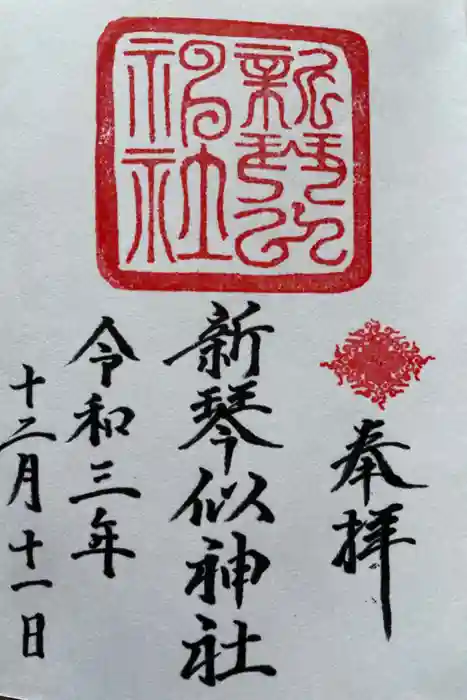 奉拝
新琴似神社
新琴似
神社
令和三年
十二月十一日